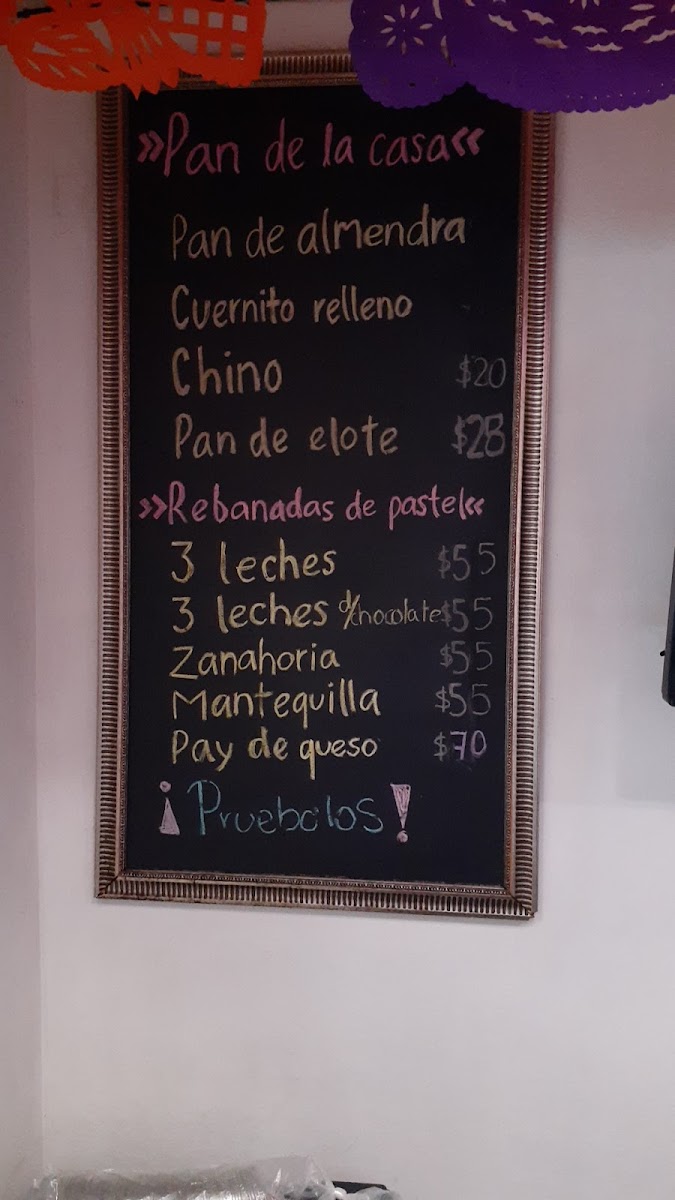 »Pan de la casa«
Pan de almendra
Cuernito relleno
Chino $20
Pan de elote $28
»Rebanadas de pastel«
3 leches $55
3 leches d/chocolate $55
Zanahoria $55
Mantequilla $55
Pay de queso $70
¡Pruebalos!